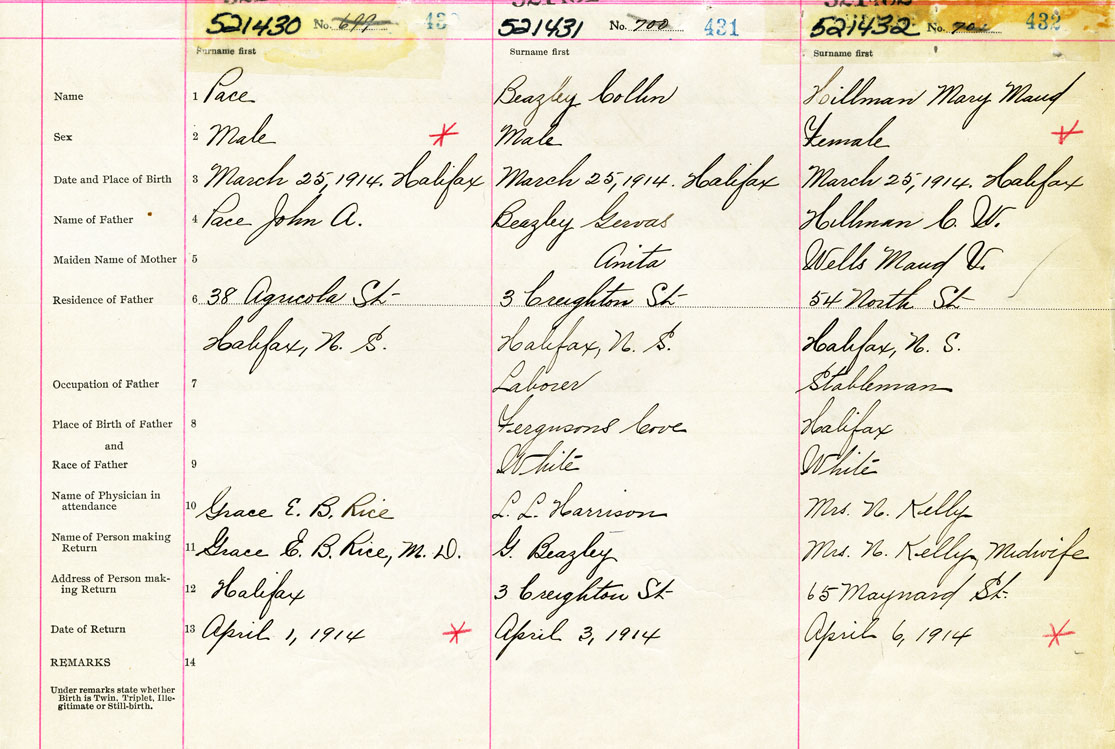 521430 No. 699 43
521431 No. 700 431
521432 No. 432
Surname first
Surname first
Surname first
Name 1 Pace
Beazley Collin
Hillman Mary Maud
Sex 2 Male
Male
Female
Date and Place of Birth 3 March 25, 1914. Halifax
March 25, 1914. Halifax
March 25, 1914. Halifax
Name of Father 4 Pace John A.
Beazley Gervas
Hillman C. W.
Maiden Name of Mother 5
Anita
Wells Maud V.
Residence of Father 6 38 Agricola St
3 Creighton St
54 North St
Halifax, N. S.
Halifax, N. S.
Halifax, N. S.
Occupation of Father 7
Laborer
Stableman
Place of Birth of Father 8
Fergusons Cove
Halifax
and
Race of Father 9
White
White
Name of Physician in
attendance 10 Grace E. B. Rice
L. L. Harrison
Mrs. N. Kelly
Name of Person making
Return 11 Grace E. B. Rice, M. D.
G. Beazley
Mrs. N. Kelly, Midwife
Address of Person mak-
ing Return 12 Halifax
3 Creighton St
65 Maynard St.
Date of Return 13 April 1, 1914
April 3, 1914
April 6, 1914
REMARKS 14
Under remarks state whether
Birth is Twin, Triplet, Ille-
gitimate or Still-birth.